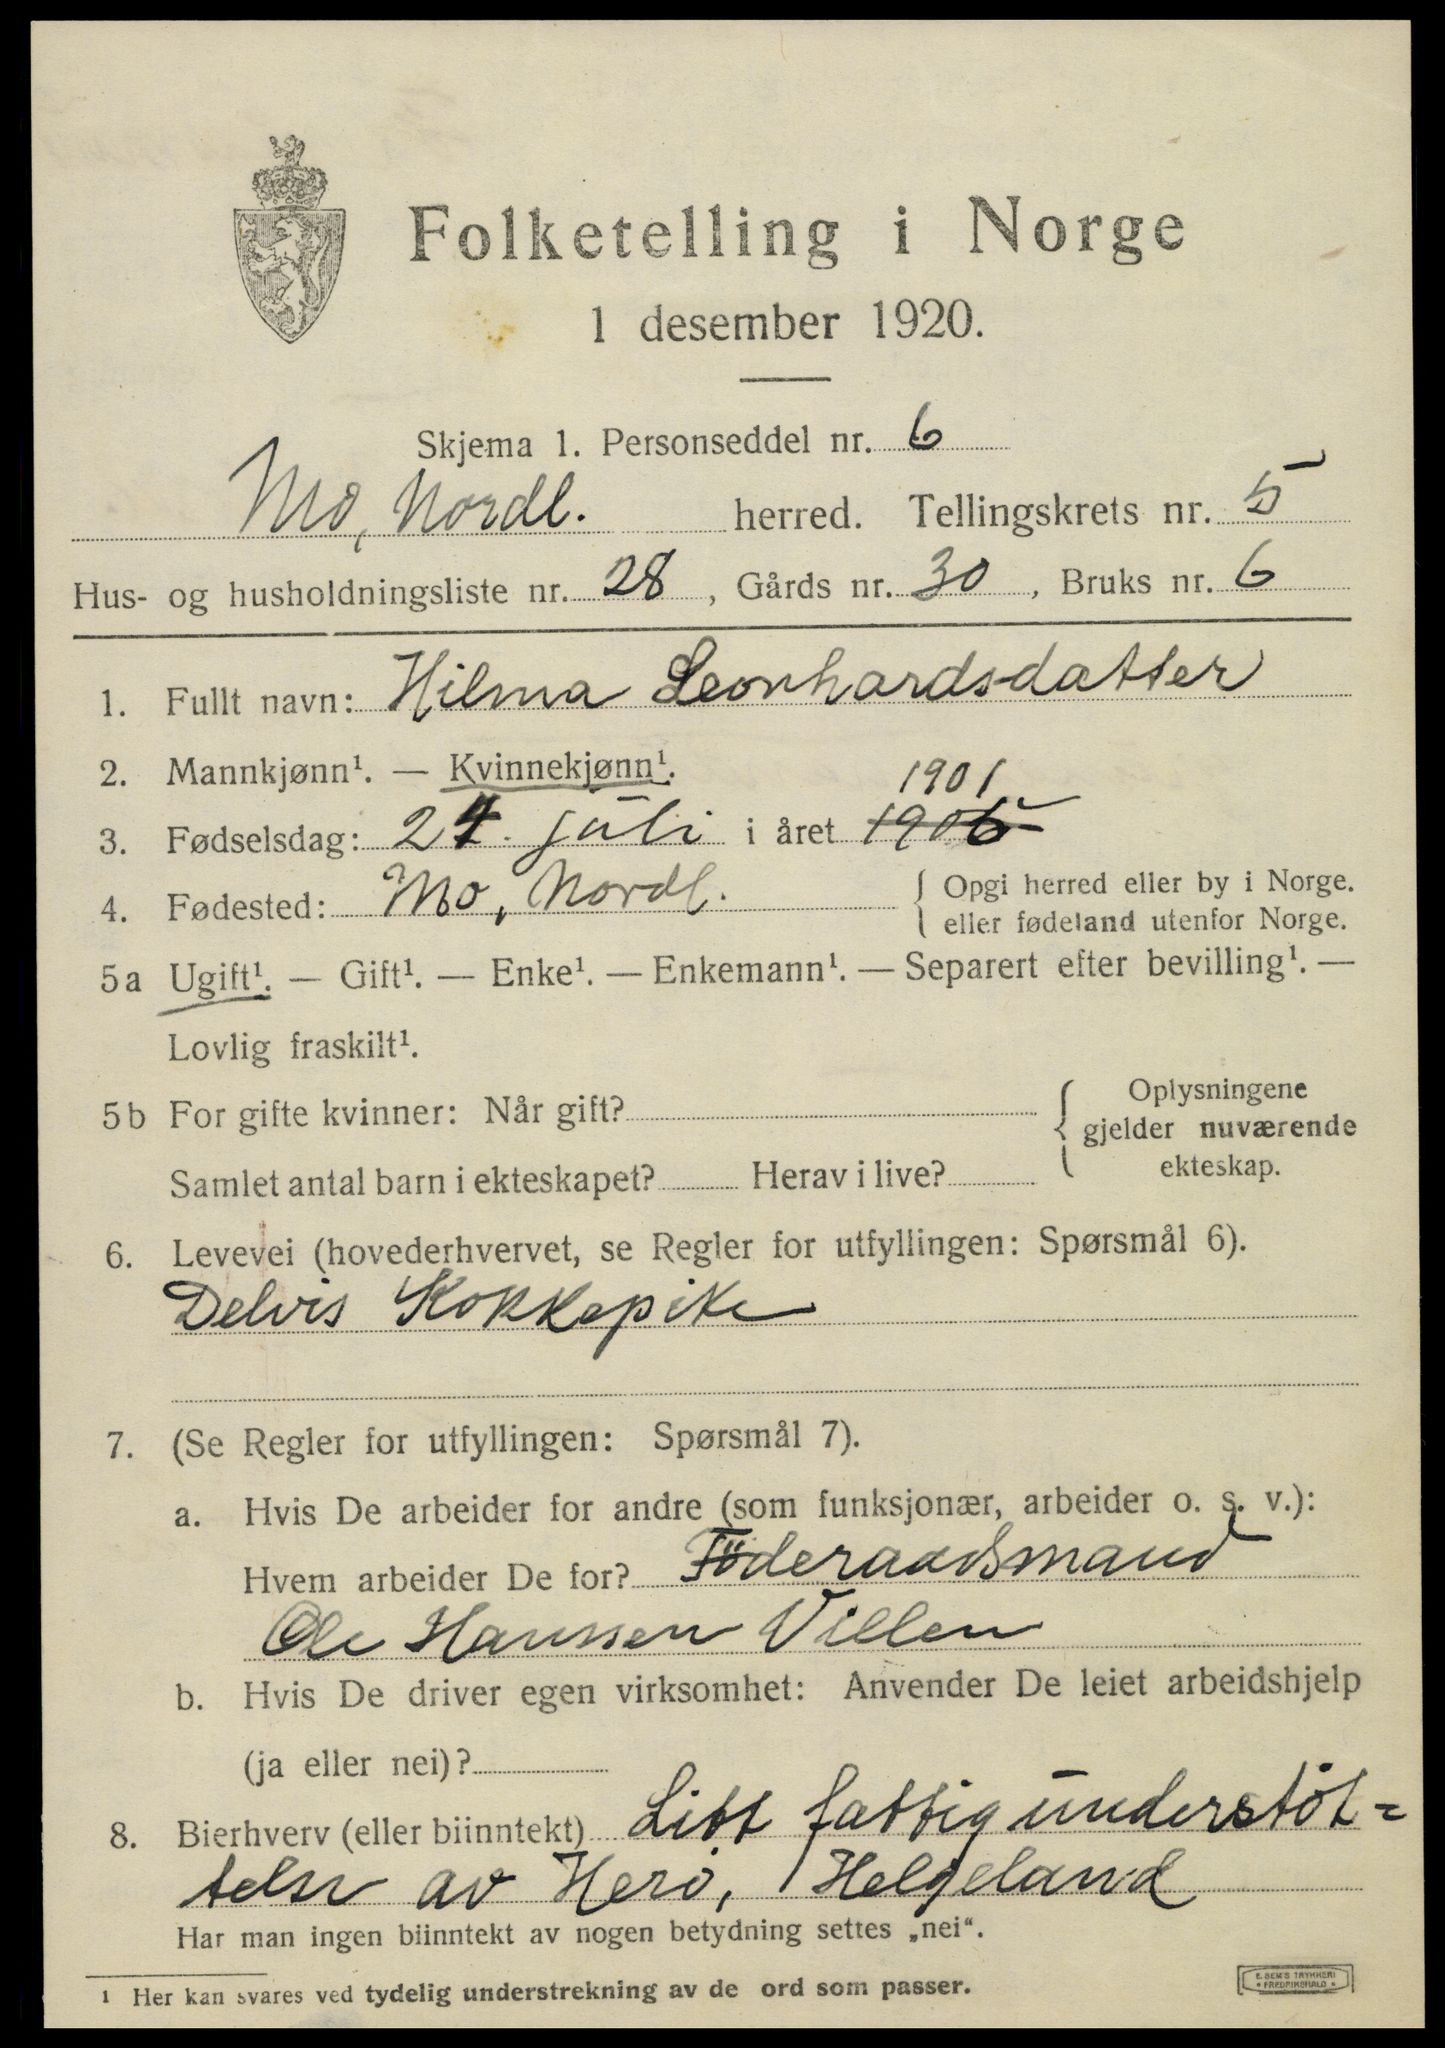 Folketelling i Norge
1 desember 1920.
Skjema 1. Personseddel nr. 6
Mo, Nordl. herred. Tellingskrets nr. 5
Hus- og husholdningsliste nr. 28, Gårds nr. 30, Bruks nr. 6
1. Fullt navn: Hilma Leonhardsdatter
2. Mannkjønn¹. — Kvinnekjønn¹.
1901
3. Fødselsdag: 24. juli i året 1906
4. Fødested: Mo, Nordl. { Opgi herred eller by i Norge.
eller fødeland utenfor Norge.
5a Ugift¹. — Gift¹. — Enke¹. — Enkemann¹. — Separert efter bevilling¹. —
Lovlig fraskilt¹.
5b For gifte kvinner: Når gift?
Samlet antal barn i ekteskapet? Herav i live?
{ Oplysningene
gjelder nuværende
ekteskap.
6. Levevei (hovederhvervet, se Regler for utfyllingen: Spørsmål 6).
Delvis Kokkepike
7. (Se Regler for utfyllingen: Spørsmål 7).
a. Hvis De arbeider for andre (som funksjonær, arbeider o. s. v.):
Hvem arbeider De for? Föderaadsmand
Ole Hanssen Villen
b. Hvis De driver egen virksomhet: Anvender De leiet arbeidshjelp
(ja eller nei)?
8. Bierhverv (eller biinntekt) Litt fattigunderstöt=
telse av Herö, Helgeland
Har man ingen biinntekt av nogen betydning settes „nei“.
1 Her kan svares ved tydelig understrekning av de ord som passer.
E. SEM'S TRYKKERI
• FREDRIKSHALD •